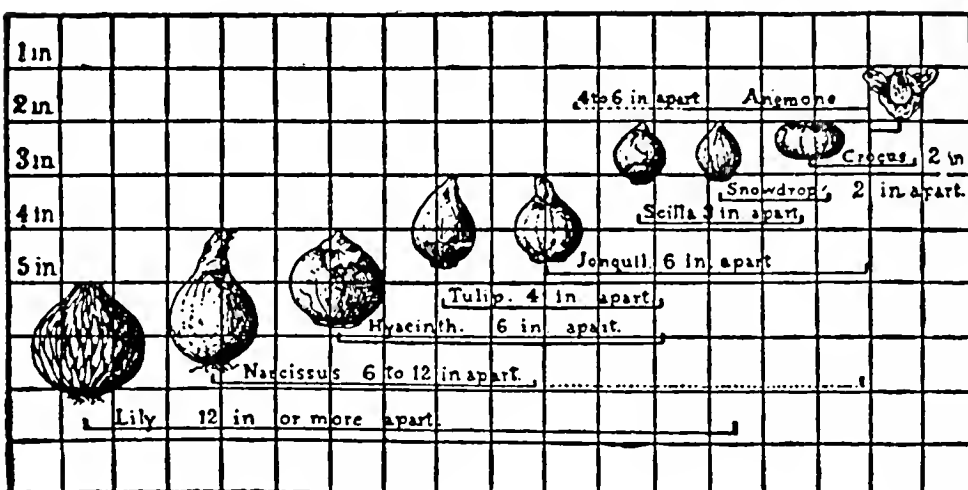 1 in
2 in
4 to 6 in apart Anemone
3 in
Crocus 2 in
Snowdrop 2 in apart.
4 in
Scilla 3 in apart
5 in
Jonquil 6 in apart
Tulip. 4 in apart
Hyacinth. 6 in apart.
Narcissus 6 to 12 in apart.
Lily 12 in or more apart.